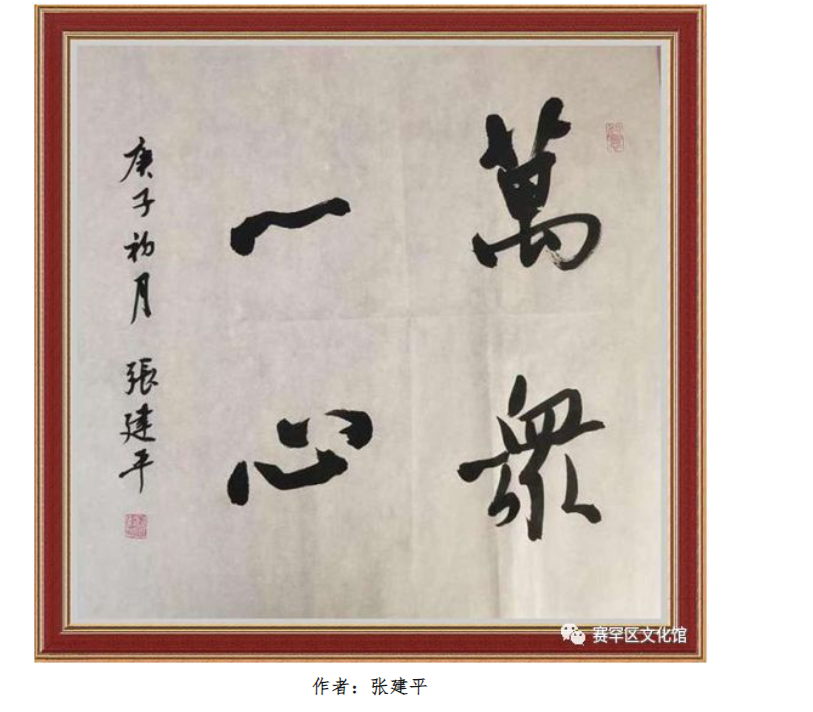 萬眾
一心
庚子初月 張建平
赛罕区文化馆
作者：张建平